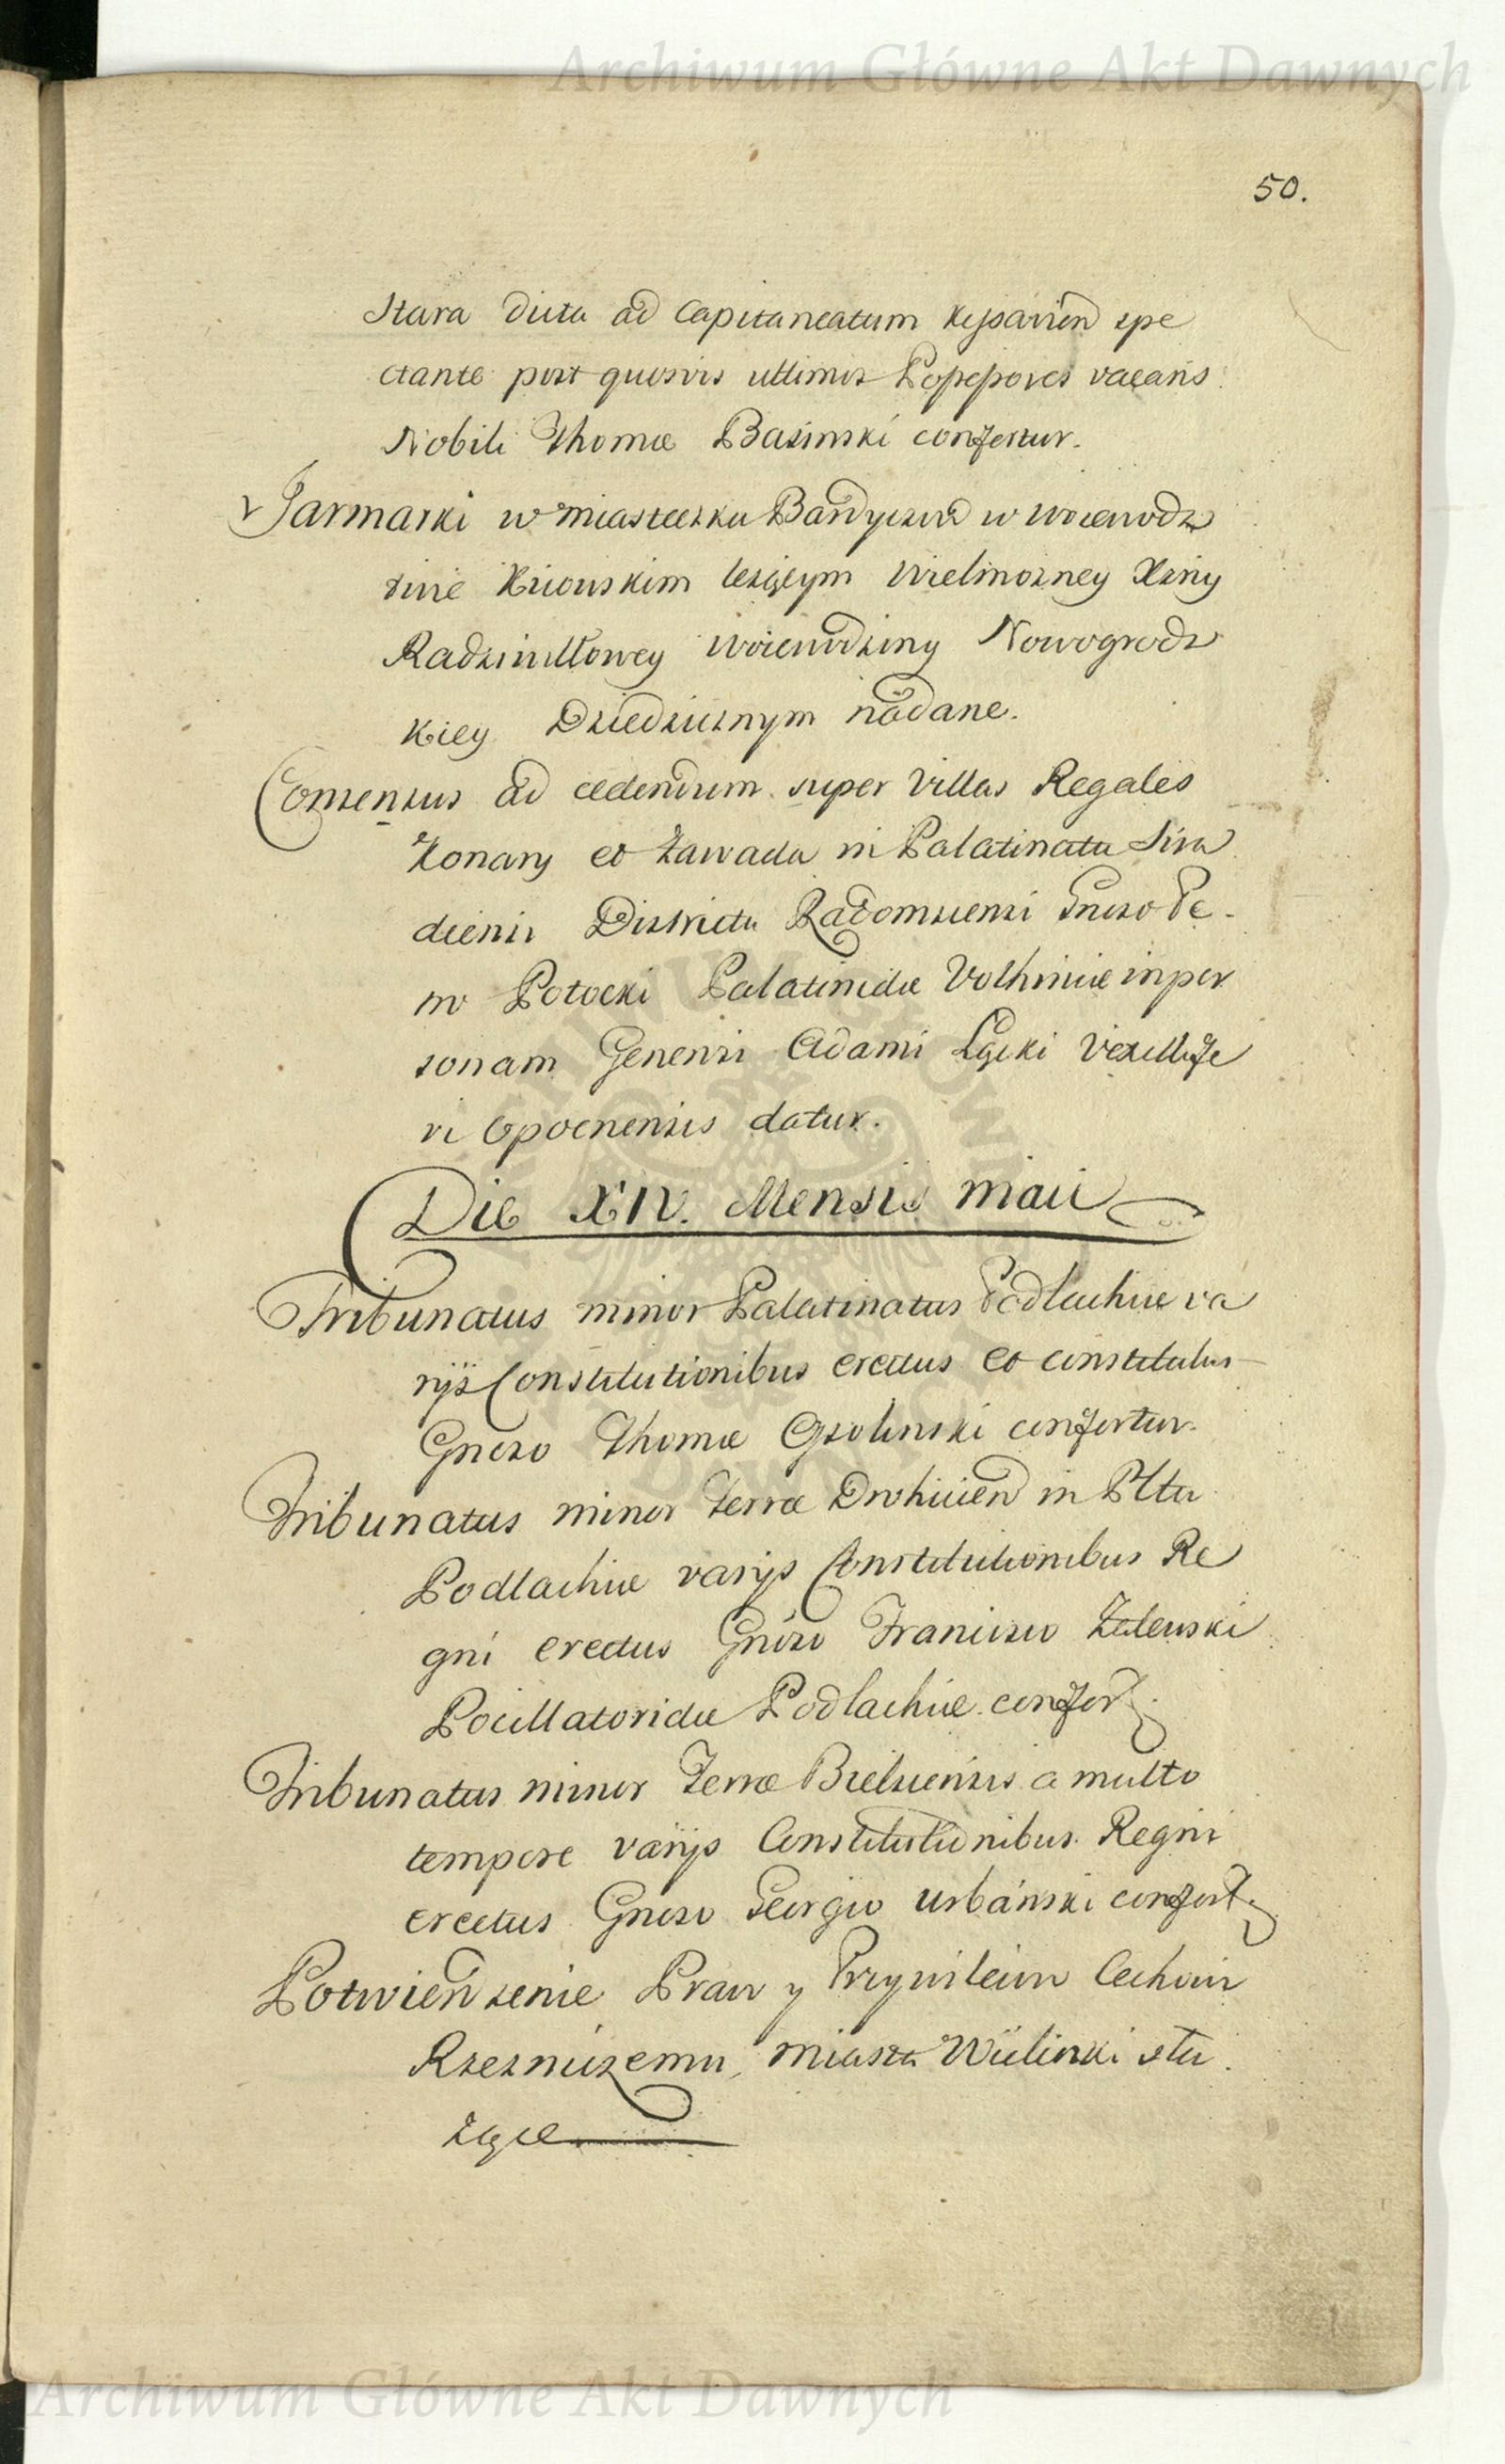 Archiwum Główne Akt Dawnych
50.
Stara dicta ad Capitaneatum Kijovien spe
ctante post quosvis ultimos vacans
Nobili Thomæ Basinski confertur.
Jarmarki w miasteczku Bardyczew w woiewodz
twie Kiiowskim leżącym Wielmożney Xżny
Radziwiłłowey Woiewodziny Nowogrodz
kiey Dziedzicznym nadane.
Consensus ad cedendum super Villas Regales
Konary et Zawada in Palatinatu Sira
diensi Districtu Radomscensi Gnoso Pe-
tro Potocki Palatinidæ Volhiniæ in per
sonam Generosi Adami Łącki Vexillife
ri Opocnensis datur.
Die XIV. Mensis Maii
Tribunatus minor Palatinatus Podlachiæ va
rijs Constitutionibus erectus et constitutus
Gnoso Thomæ Ossolinski confertur.
Tribunatus minor Terræ Drohicien in Pltu
Podlachiæ varijs Constitutionibus Re
gni erectus Gnoso Francisco Zalewski
Pocillatoridæ Podlachiæ confert.
Tribunatus minor Terræ Bielscensis a multo
tempore varijs Constitutionibus Regni
erectus Gnoso Georgio Urbański confert.
Potwierdzenie Praw y Przywileiow Cechowi
Rzeźniczemu, miasta Wieliczki słu
żące
Archiwum Główne Akt Dawnych